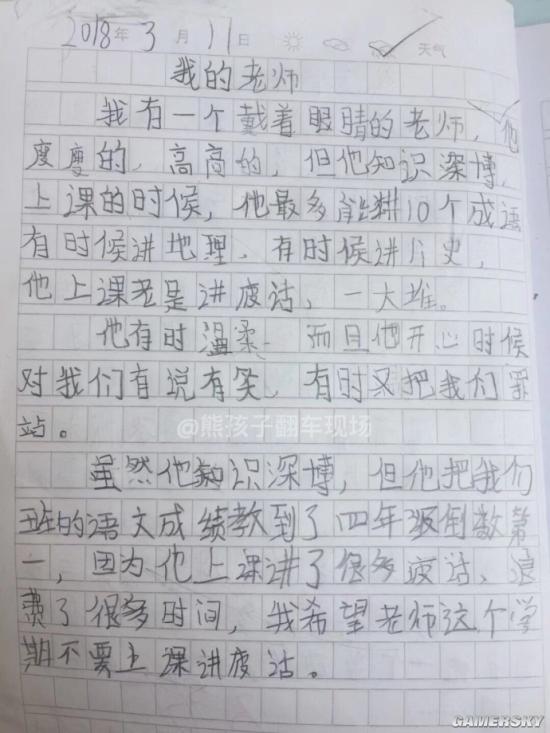 2018年3月11日 天气
我的老师
我有一个戴着眼睛的老师，他
瘦瘦的，高高的，但他知识深博，
上课的时候，他最多能讲10个成语
有时候讲地理，有时候讲历史，
他上课老是讲废话，一大堆。
他有时温柔 而且他开心时候
对我们有说有笑，有时又把我们罚
站。
@熊孩子翻车现场
虽然他知识深博，但他把我们
班的语文成绩教到了四年级倒数第
一，因为他上课讲了很多废话，浪
费了很多时间，我希望老师这个学
期不要上课讲废话。
GAMERSKY